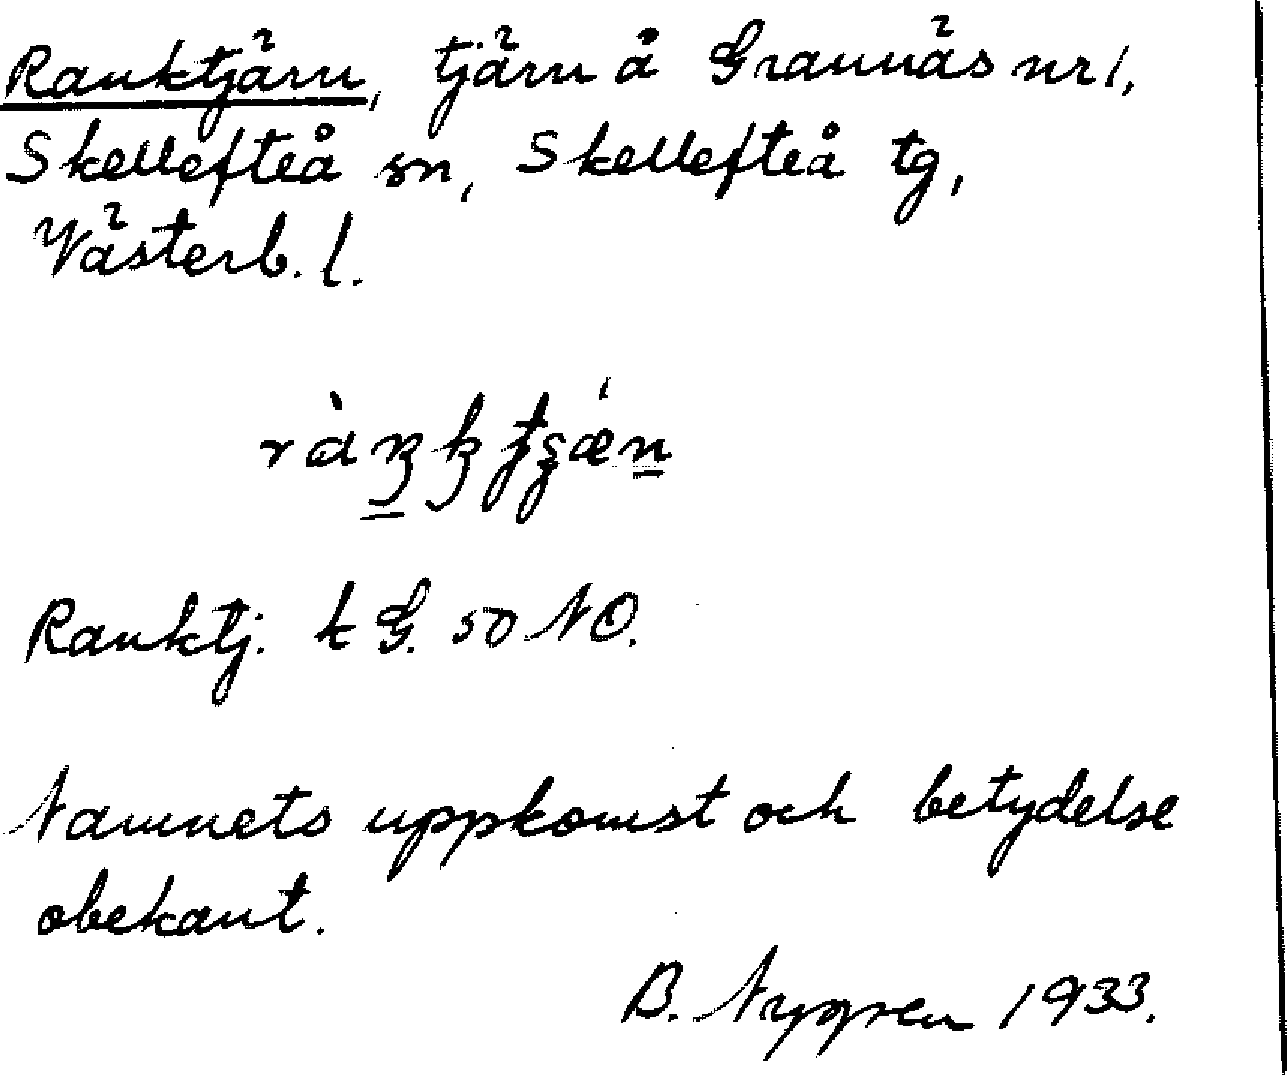 Ranktjärn, tjärn å Grannäs nr 1,
Skellefteå sn, Skellefteå tg,
Västerb. l.
Ranktj. k G. 50 NO.
Namnets uppkomst och betydelse
obekant.
B. Nygren 1933.